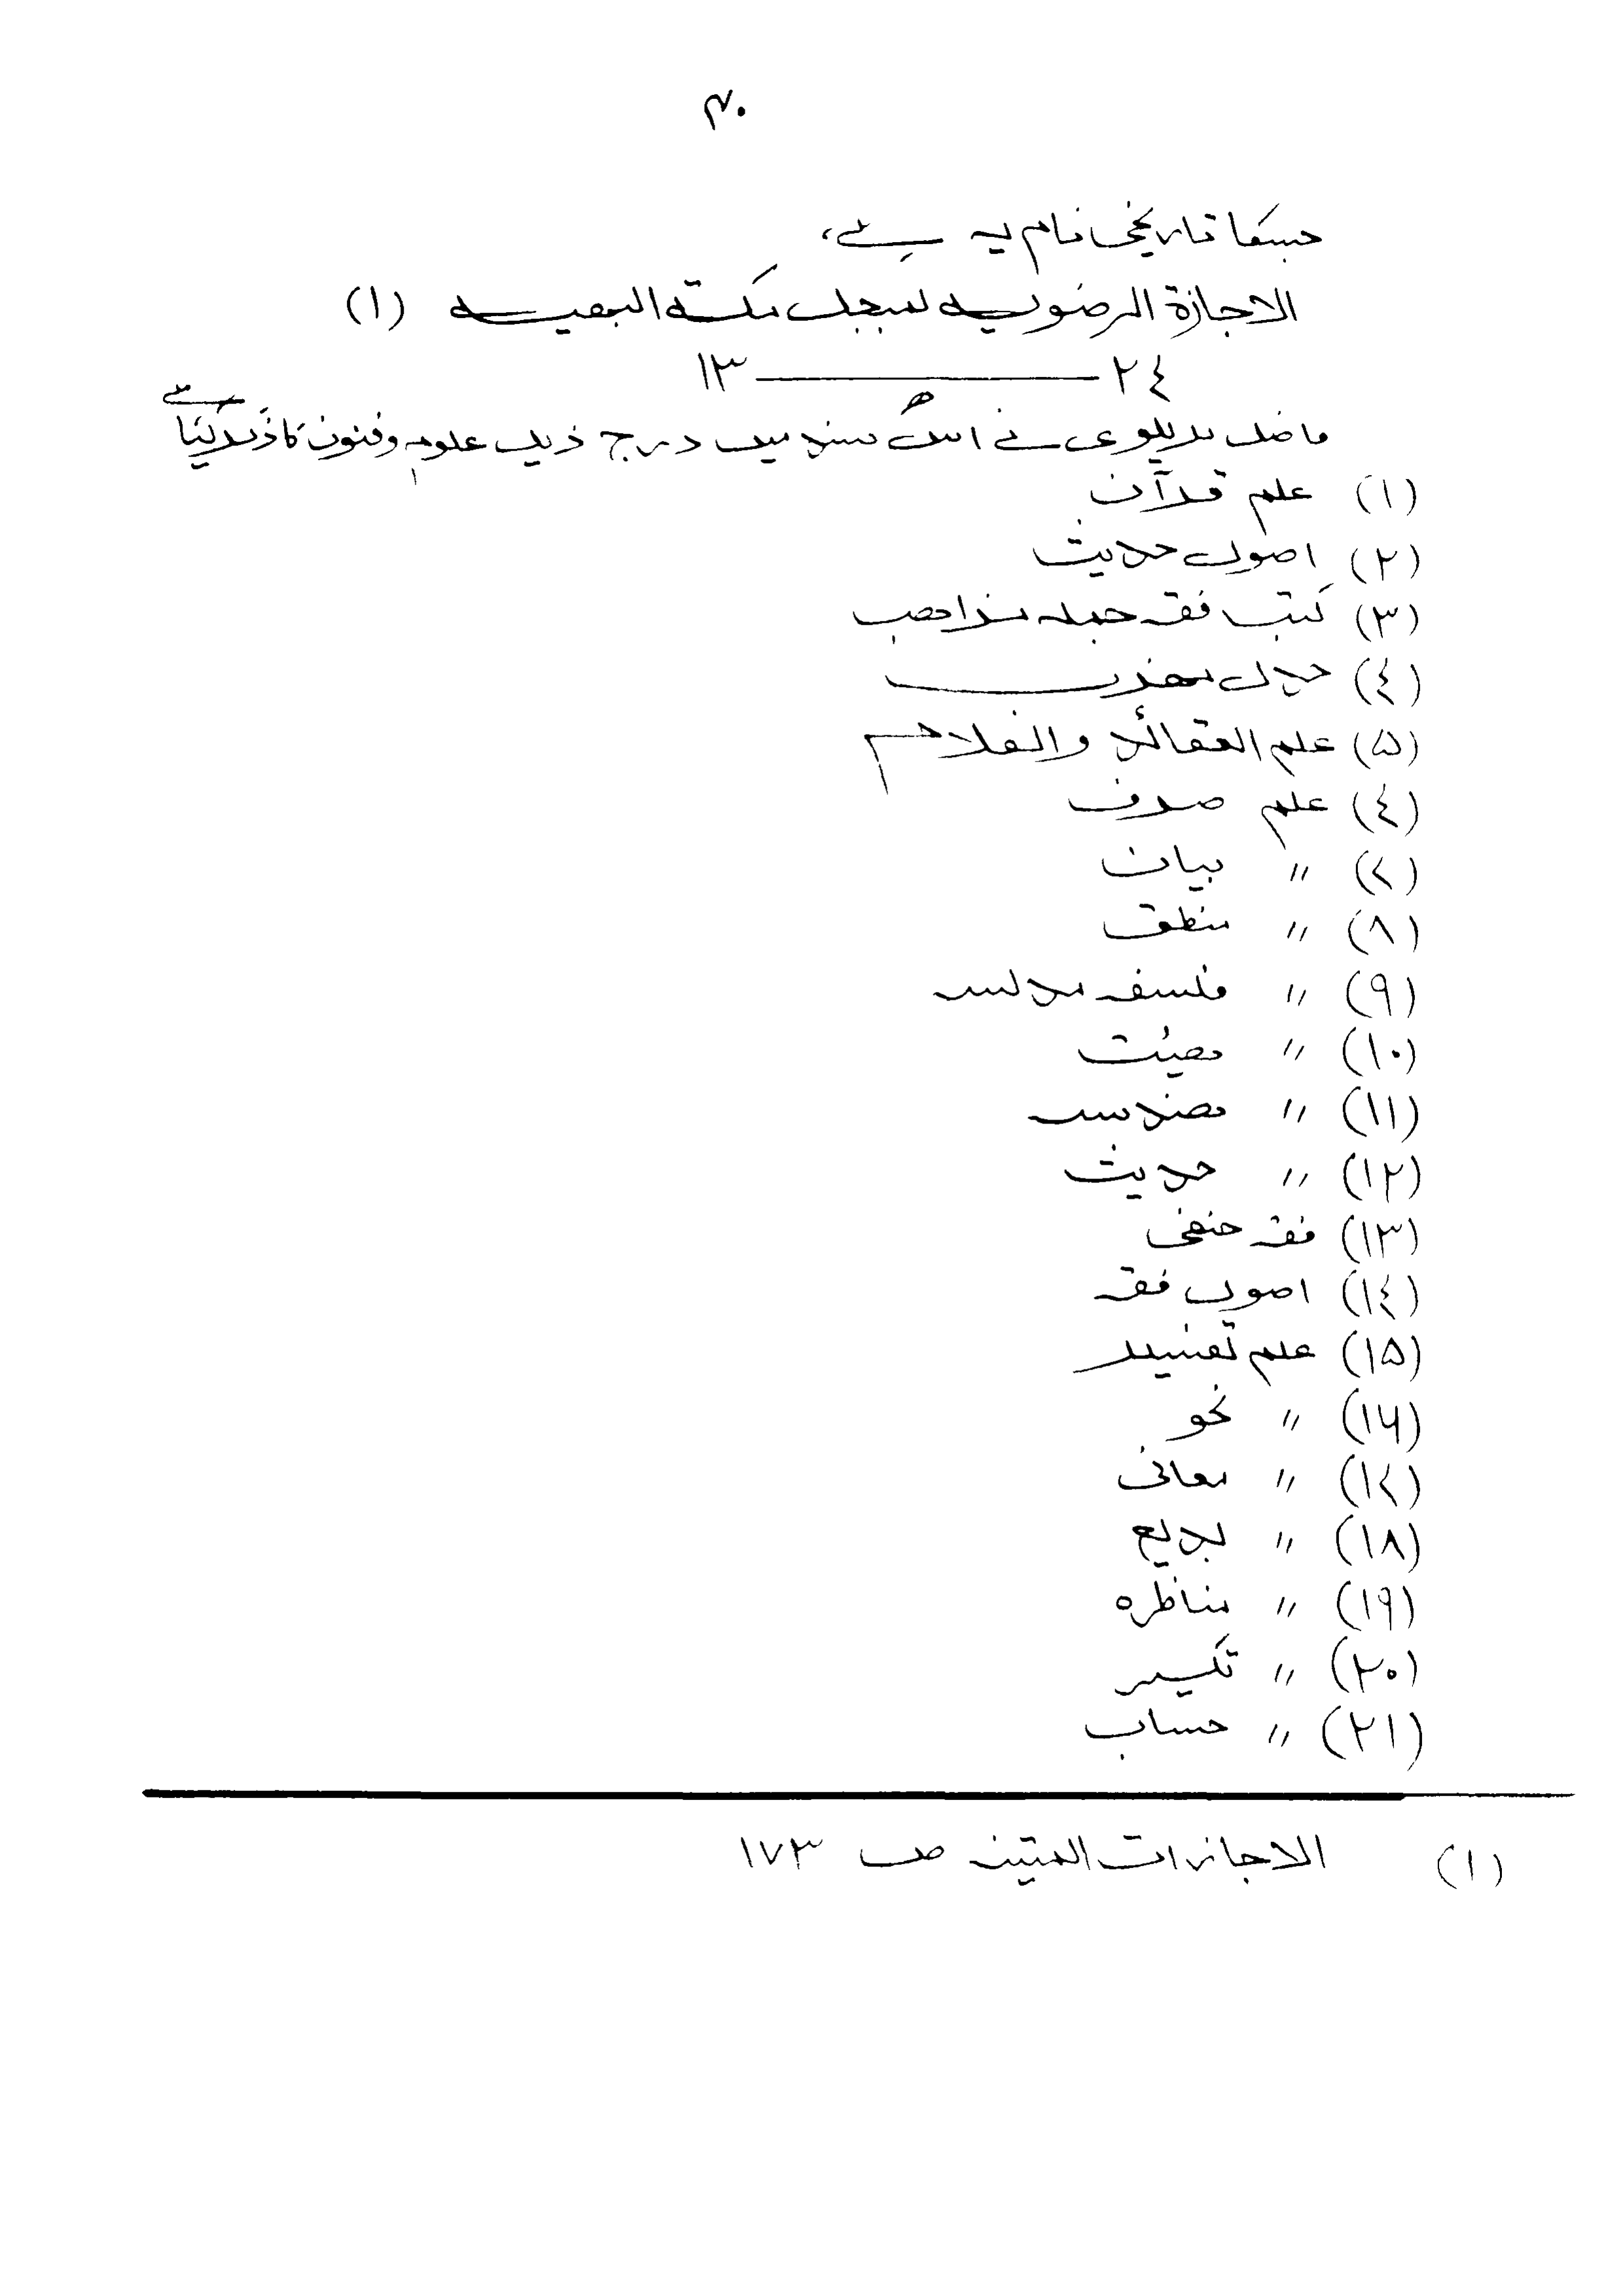 ۴۰
جسکا تاریخی نام یہ ہے،
الاجازۃ الرضویہ لمبجل مکتہ البھیہ (۱)
۲٤ ــــــــــ ۱۳
ھ
فاضل بریلوی نے اس سند میں درج ذیل علوم وفنون کا ذکر کیا ہے
(۱) علم قرآن
(۲) اصول حدیث
(۳) کتب فقہ جملہ مذاھب
(٤) جدل مھذب
(۵) علم العقائد والکلام
(٤) علم صرف
(۷) " بیان
(۸) " منطق
(۹) " فلسفہ مدلسہ
(۱۰) " ھیئت
(۱۱) " ھندسہ
(۱۲) " حدیث
(۱۳) فقہ حنفی
(۱٤) اصول فقہ
(۱۵) علم تفسیر
(۱۶) " نحو
(۱۷) " معانی
(۱۸) " بدیع
(۱۹) " مناظرہ
(۲۰) " تکسیر
(۲۱) " حساب
(۱) الاجازات المتینہ ص ۱۷۳